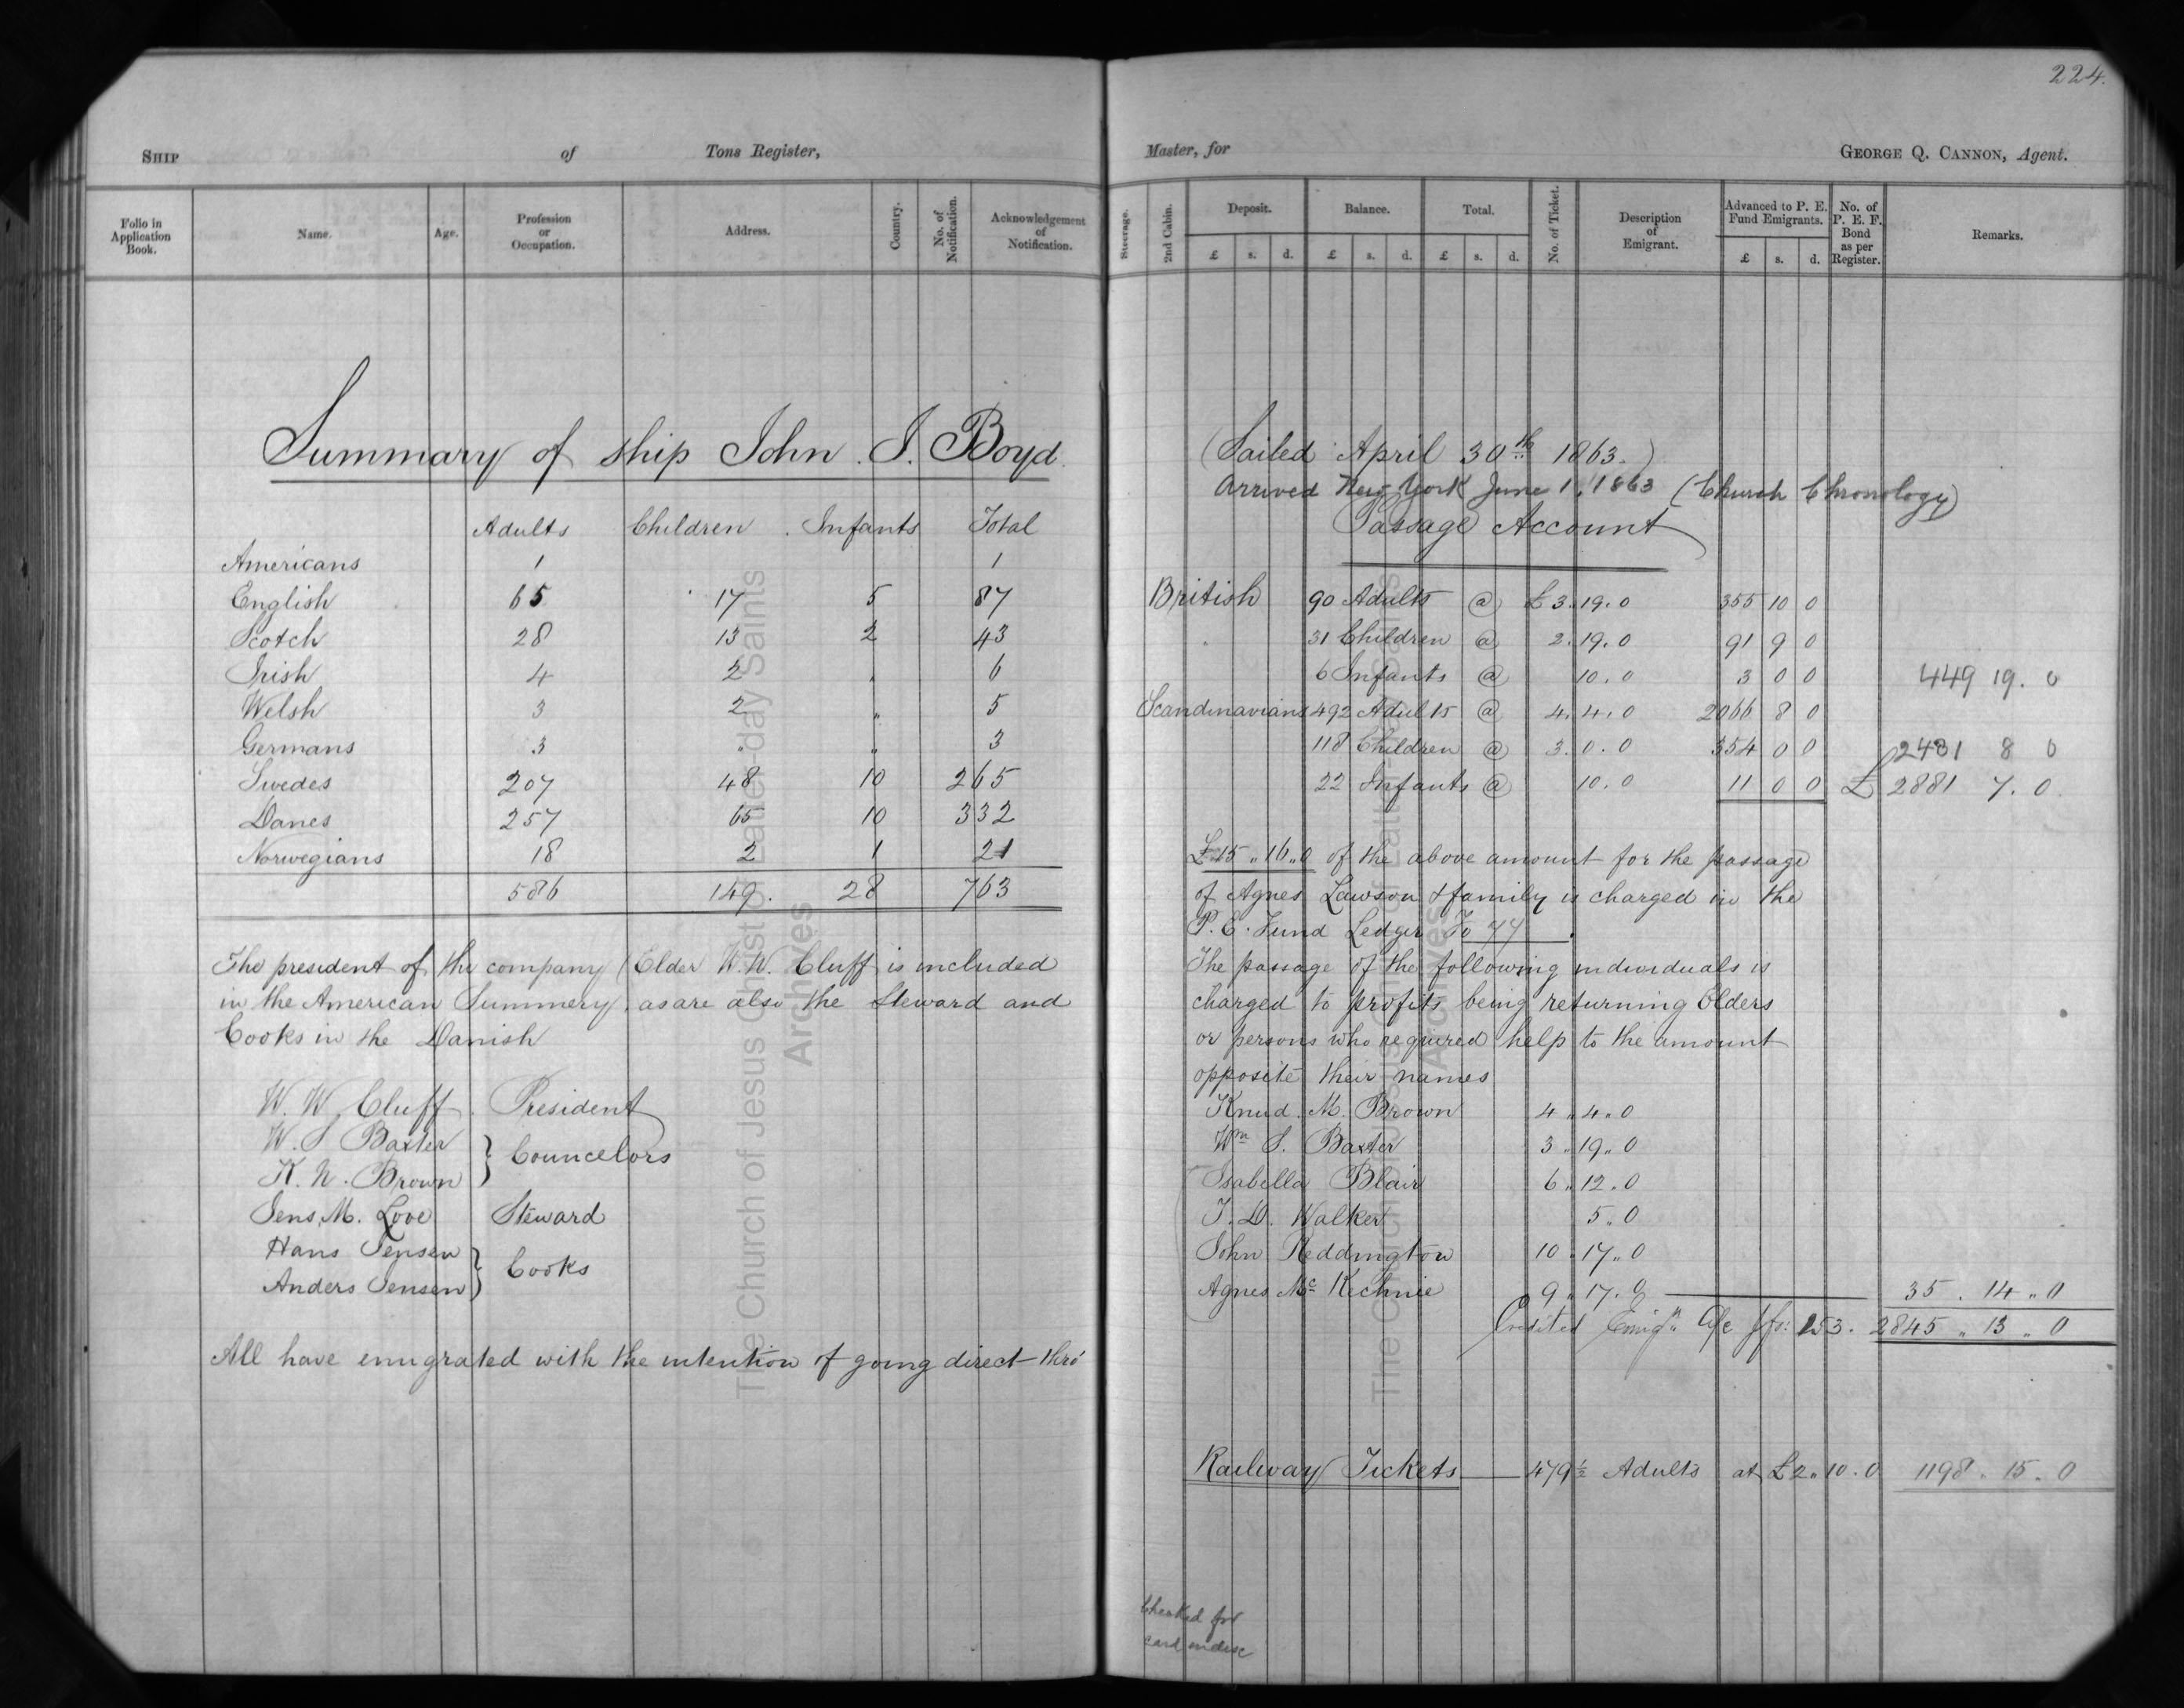 224.
SHIP of Tons Register,
Master, for GEORGE Q. CANNON, Agent.
Folio in Application Book. Name. Age. Profession or Occupation. Address. Country. No. of Notification. Acknowledgement of Notification.
Steerage. 2nd Cabin. Deposit. Balance. Total. No. of Ticket. Description of Emigrant. Advanced to P. E. Fund Emigrants. No. of P. E. F. Bond as per Register. Remarks.
£ s. d. £ s. d. £ s. d. £ s. d.
Summary of ship John J. Boyd.
Adults Children Infants Total
Americans 1 1
English 65 17 5 87
Scotch 28 13 2 43
Irish 4 2 " 6
Welsh 3 2 " 5
Germans 3 " " 3
Swedes 207 48 10 265
Danes 257 65 10 332
Norwegians 18 2 1 21
586 149. 28 763
The president of the company (Elder W. W. Cluff is included
in the American Summery, as are also the Steward and
Cooks in the Danish
W. W. Cluff. President
W. S Baxter } Councelors
K. H. Brown
Jens. M. Love Steward
Hans Jensen } Cooks
Anders Jensen
All have emigrated with the intention of going direct thro'
(Sailed April 30th 1863.)
Arrived New York June 1, 1863 (Church Chronology)
Passage Account
British 90 Adults @ £3.19.0 355 10 0
" 31 Children @ 2.19.0 91 9 0
6 Infants @ 10.0 3 0 0 449 19. 0
Scandinavians 492 Adults @ 4.4.0 2066 8 0
118 Children @ 3.0.0 354 0 0 2431 8 0
22 Infants @ 10.0 11 0 0 £ 2881 7. 0
£15 " 16 " 0 of the above amount for the passage
of Agnes Lawson & family is charged in the
P. E. Fund Ledger Fo 77.
The passage of the following individuals is
charged to profits being returning Elders
or persons who required help to the amount
opposite their names
Knud. M. Brown 4 " 4 " 0
Wm S. Baxter 3 " 19 " 0
Isabella Blair 6 " 12. 0
J. D. Walker 5 " 0
John Reddington 10 " 17 " 0
Agnes Mc Kechnie 9 " 17. 0 35 . 14 " 0
Credited Emign. a/c fo: 253. 2845 " 13 " 0
Railway Tickets 479½ Adults at £2 " 10. 0 1198 " 15. 0
Checked for
card index
The Church of Jesus Christ of Latter-day Saints
Archives
The Church of Jesus Christ of Latter-day Saints
Archives